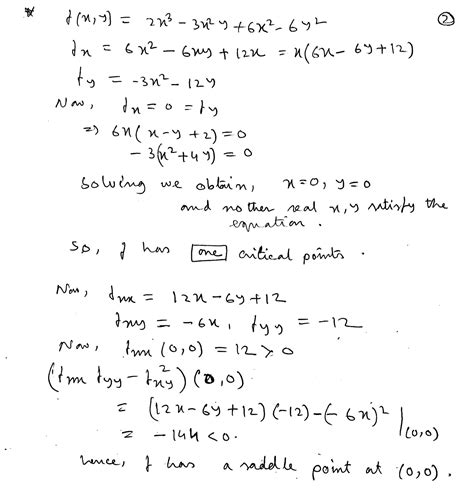 * f(x,y) = 2x³ - 3x²y + 6x² - 6y² ②
fx = 6x² - 6xy + 12x = x(6x - 6y + 12)
fy = -3x² - 12y
Now, fx = 0 = fy
⇒ 6x(x - y + 2) = 0
- 3(x² + 4y) = 0
Solving we obtain, x=0, y=0
and no other real x, y satisfy the
equation.
So, f has one critical points.
Now, fxx = 12x - 6y + 12
fxy = -6x, fyy = -12
Now, fxx (0,0) = 12 > 0
(fxx fyy - f²xy) (0,0)
= (12x - 6y + 12) (-12) - (-6x)² |(0,0)
= -144 < 0.
hence, f has a saddle point at (0,0).